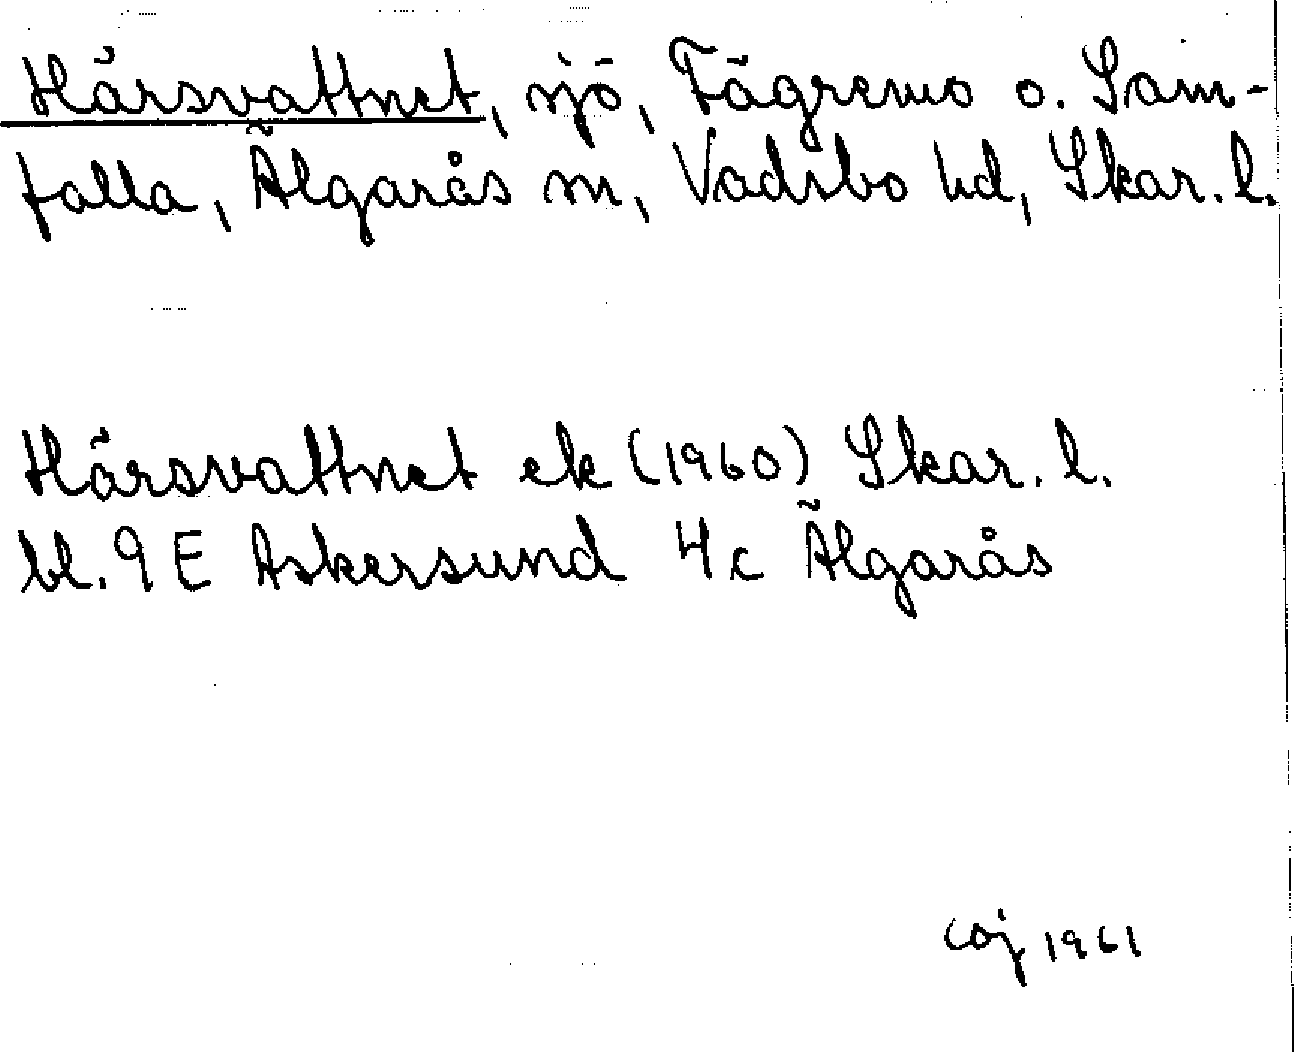 Härsvattnet, sjö, Fägremo o. Sam-
falla, Älgarås sn, Vadsbo hd, Skar. l.
Härsvattnet ek (1960) Skar. l.
bl. 9 E Askersund 4c Älgarås
coj 1961